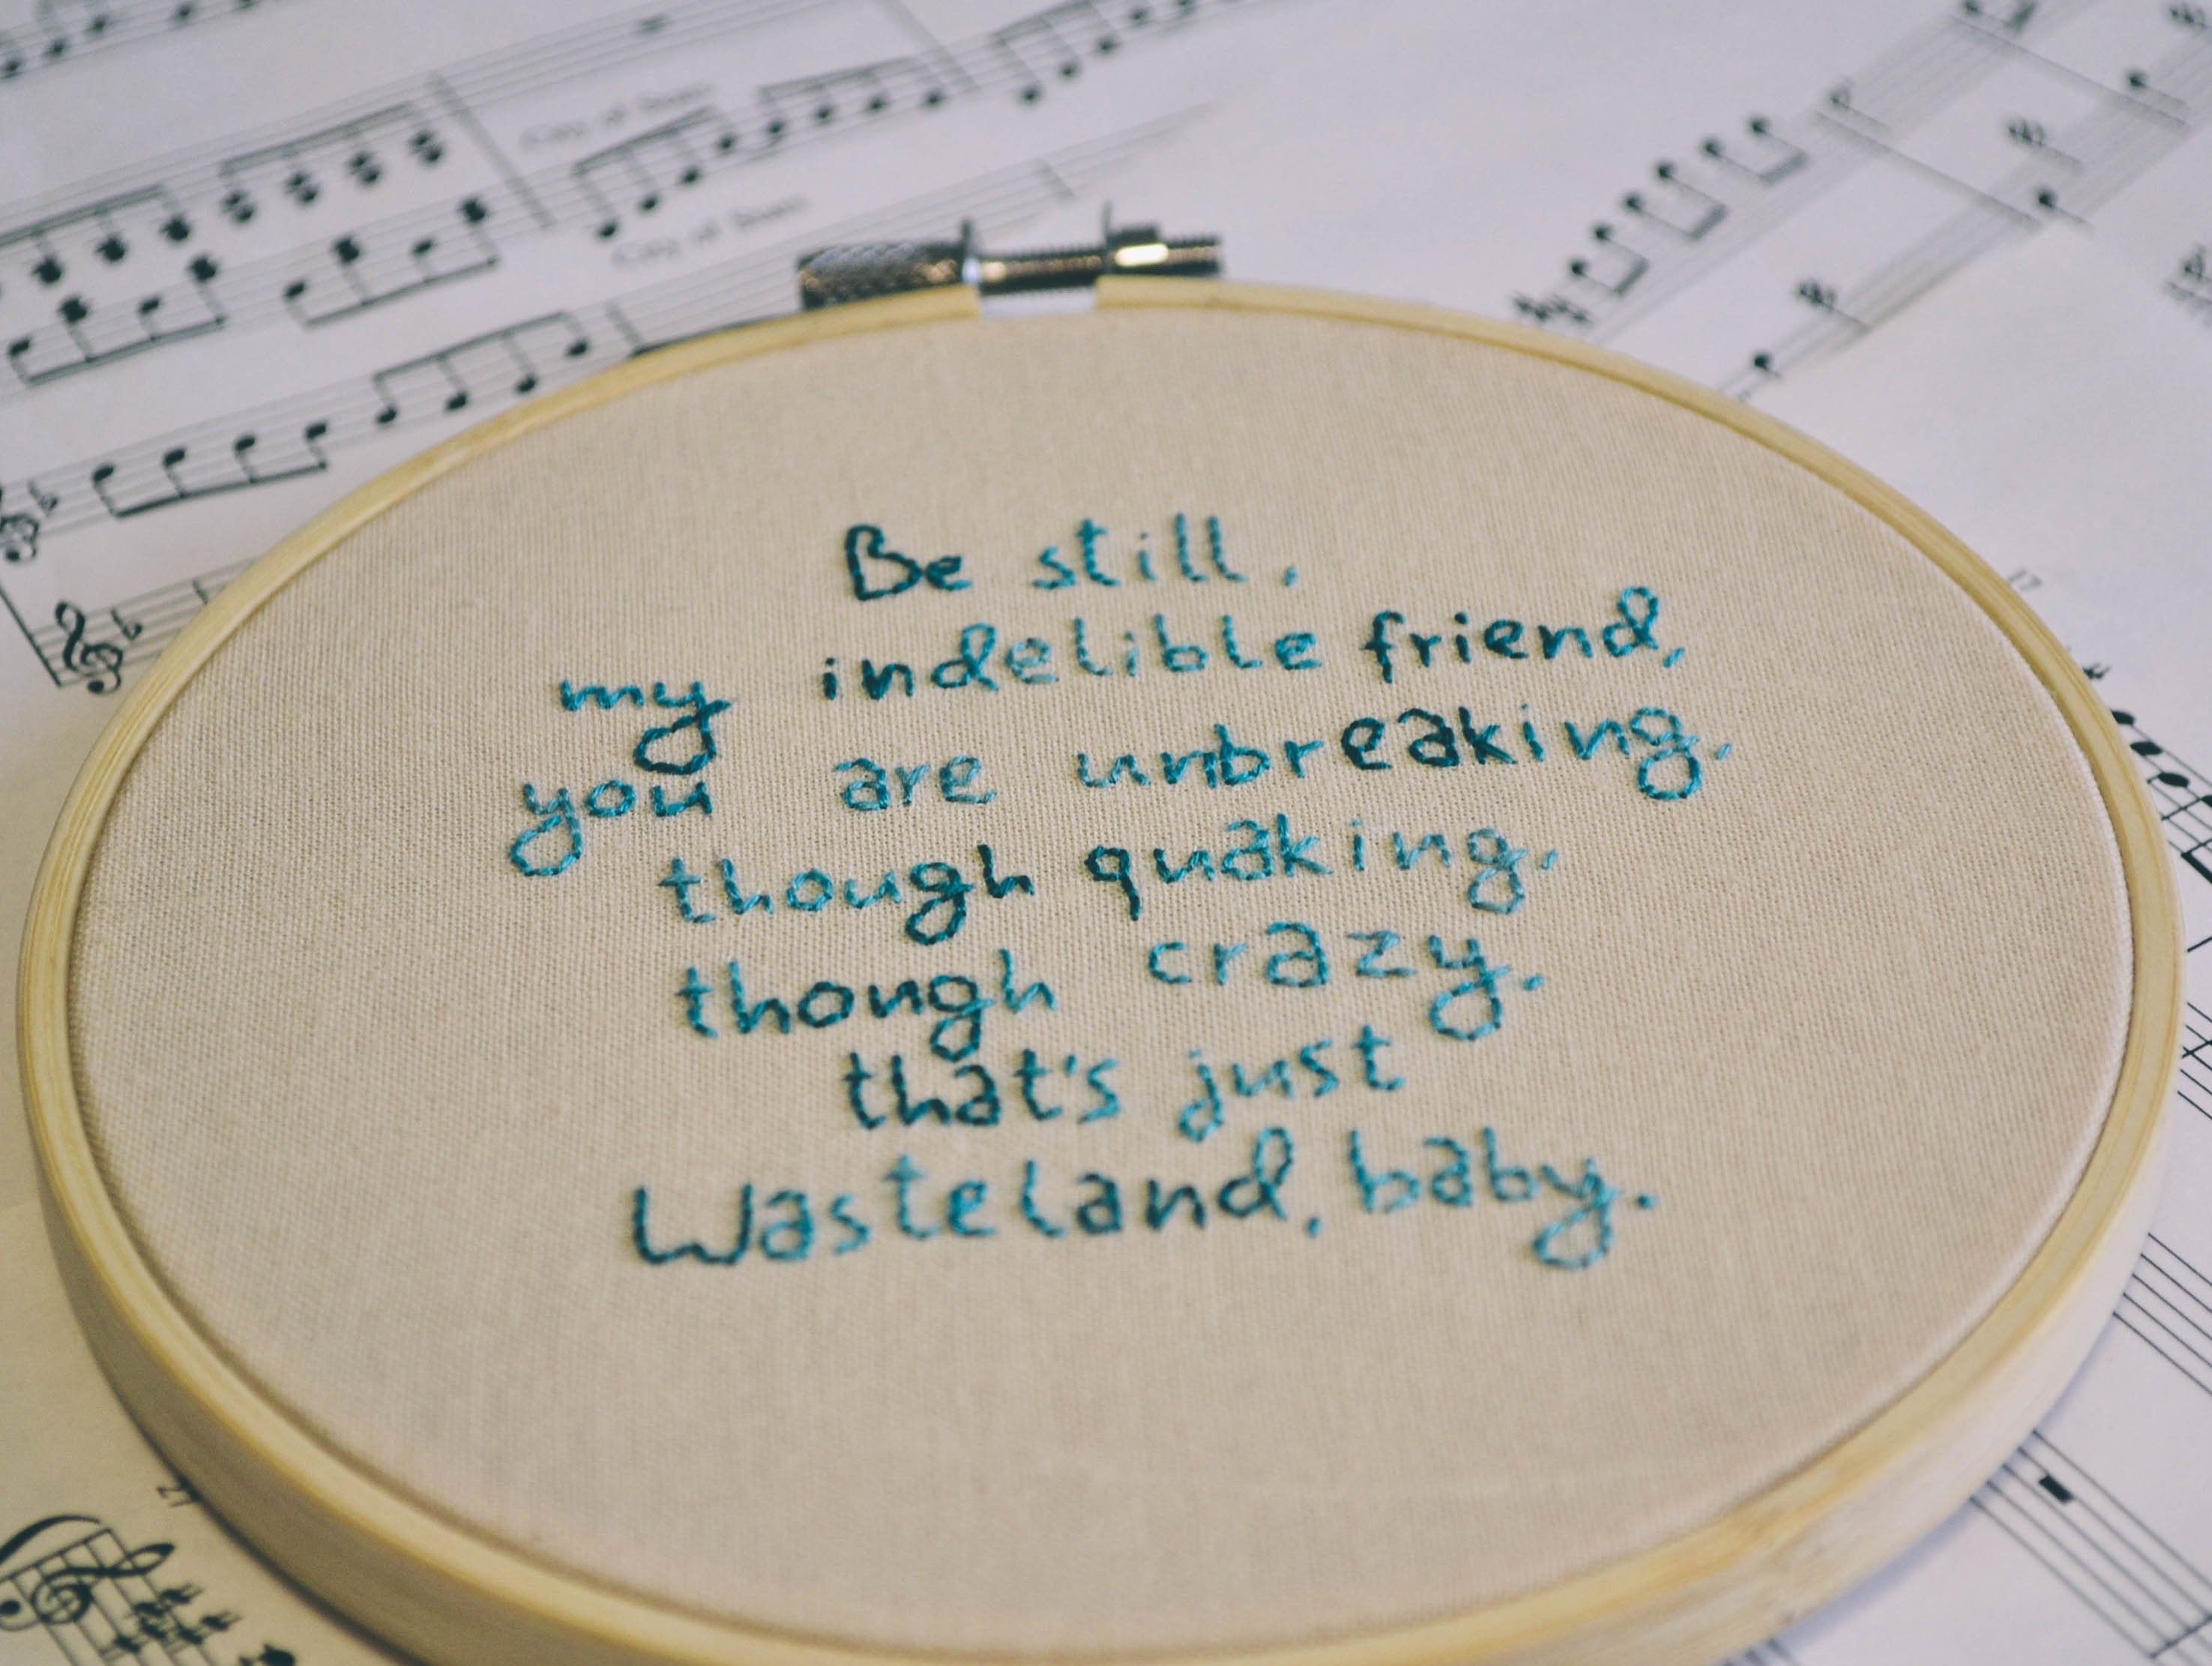 City of Stars
City of Stars
17
Be still,
my indelible friend,
you are unbreaking,
though quaking,
though crazy.
that's just
Wasteland, baby.
27